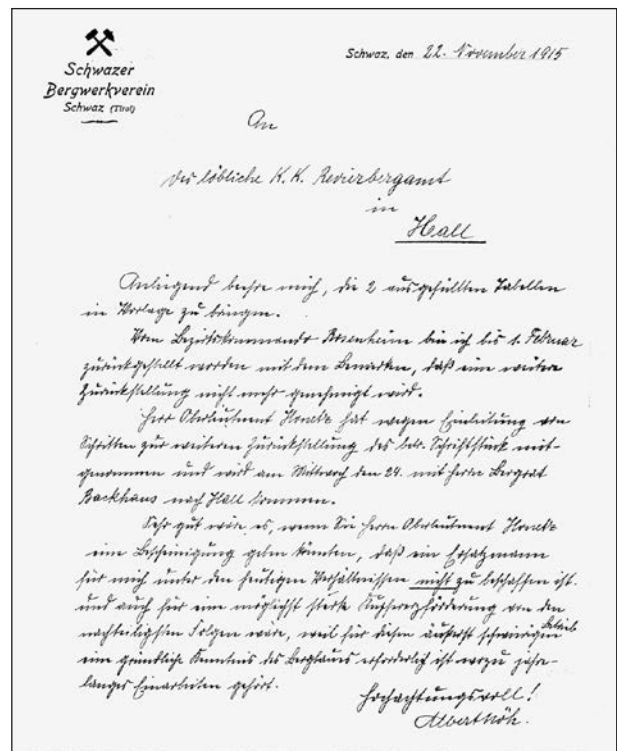 Schwazer
Bergwerkverein
Schwaz (Tirol)
Schwaz, den 22. November 1915
An
das löbliche K. K. Revierbergamt
in
Hall
Anliegend beehre mich, die 2 ausgefüllten Tabellen
in Vorlage zu bringen.
Vom Bezirkskommando Rosenheim bin ich bis 1. Februar
zurückgestellt worden mit dem Bemerken, daß eine weitere
Zurückstellung nicht mehr genehmigt wird.
Herr Oberleutnant hat wegen Einleitung von
Schritten zur weiteren Zurückstellung das betr. Schriftstück mit-
genommen und wird am Mittwoch den 24. mit Herrn Bergrat
Backhaus nach Hall kommen.
Sehr gut wäre es, wenn Sie Herrn Oberleutnant
eine Bescheinigung geben könnten, daß ein Ersatzmann
für mich unter den heutigen Verhältnissen nicht zu beschaffen ist.
und auch für eine möglichst starke Kupfererzförderung von den
nachteiligsten Folgen wäre, weil für diesen äußerst schwierigen Betrieb
eine gründliche Kenntnis des Bergbaues erforderlich ist wozu jahre-
langes Einarbeiten gehört.
Hochachtungsvoll!
Albert Nöh.